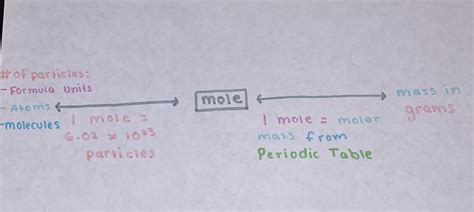 # of particles:
- Formula Units
- Atoms
-molecules
1 mole =
6.02 x 10²³
particles
mole
1 mole = molar
mass from
Periodic Table
mass in
grams